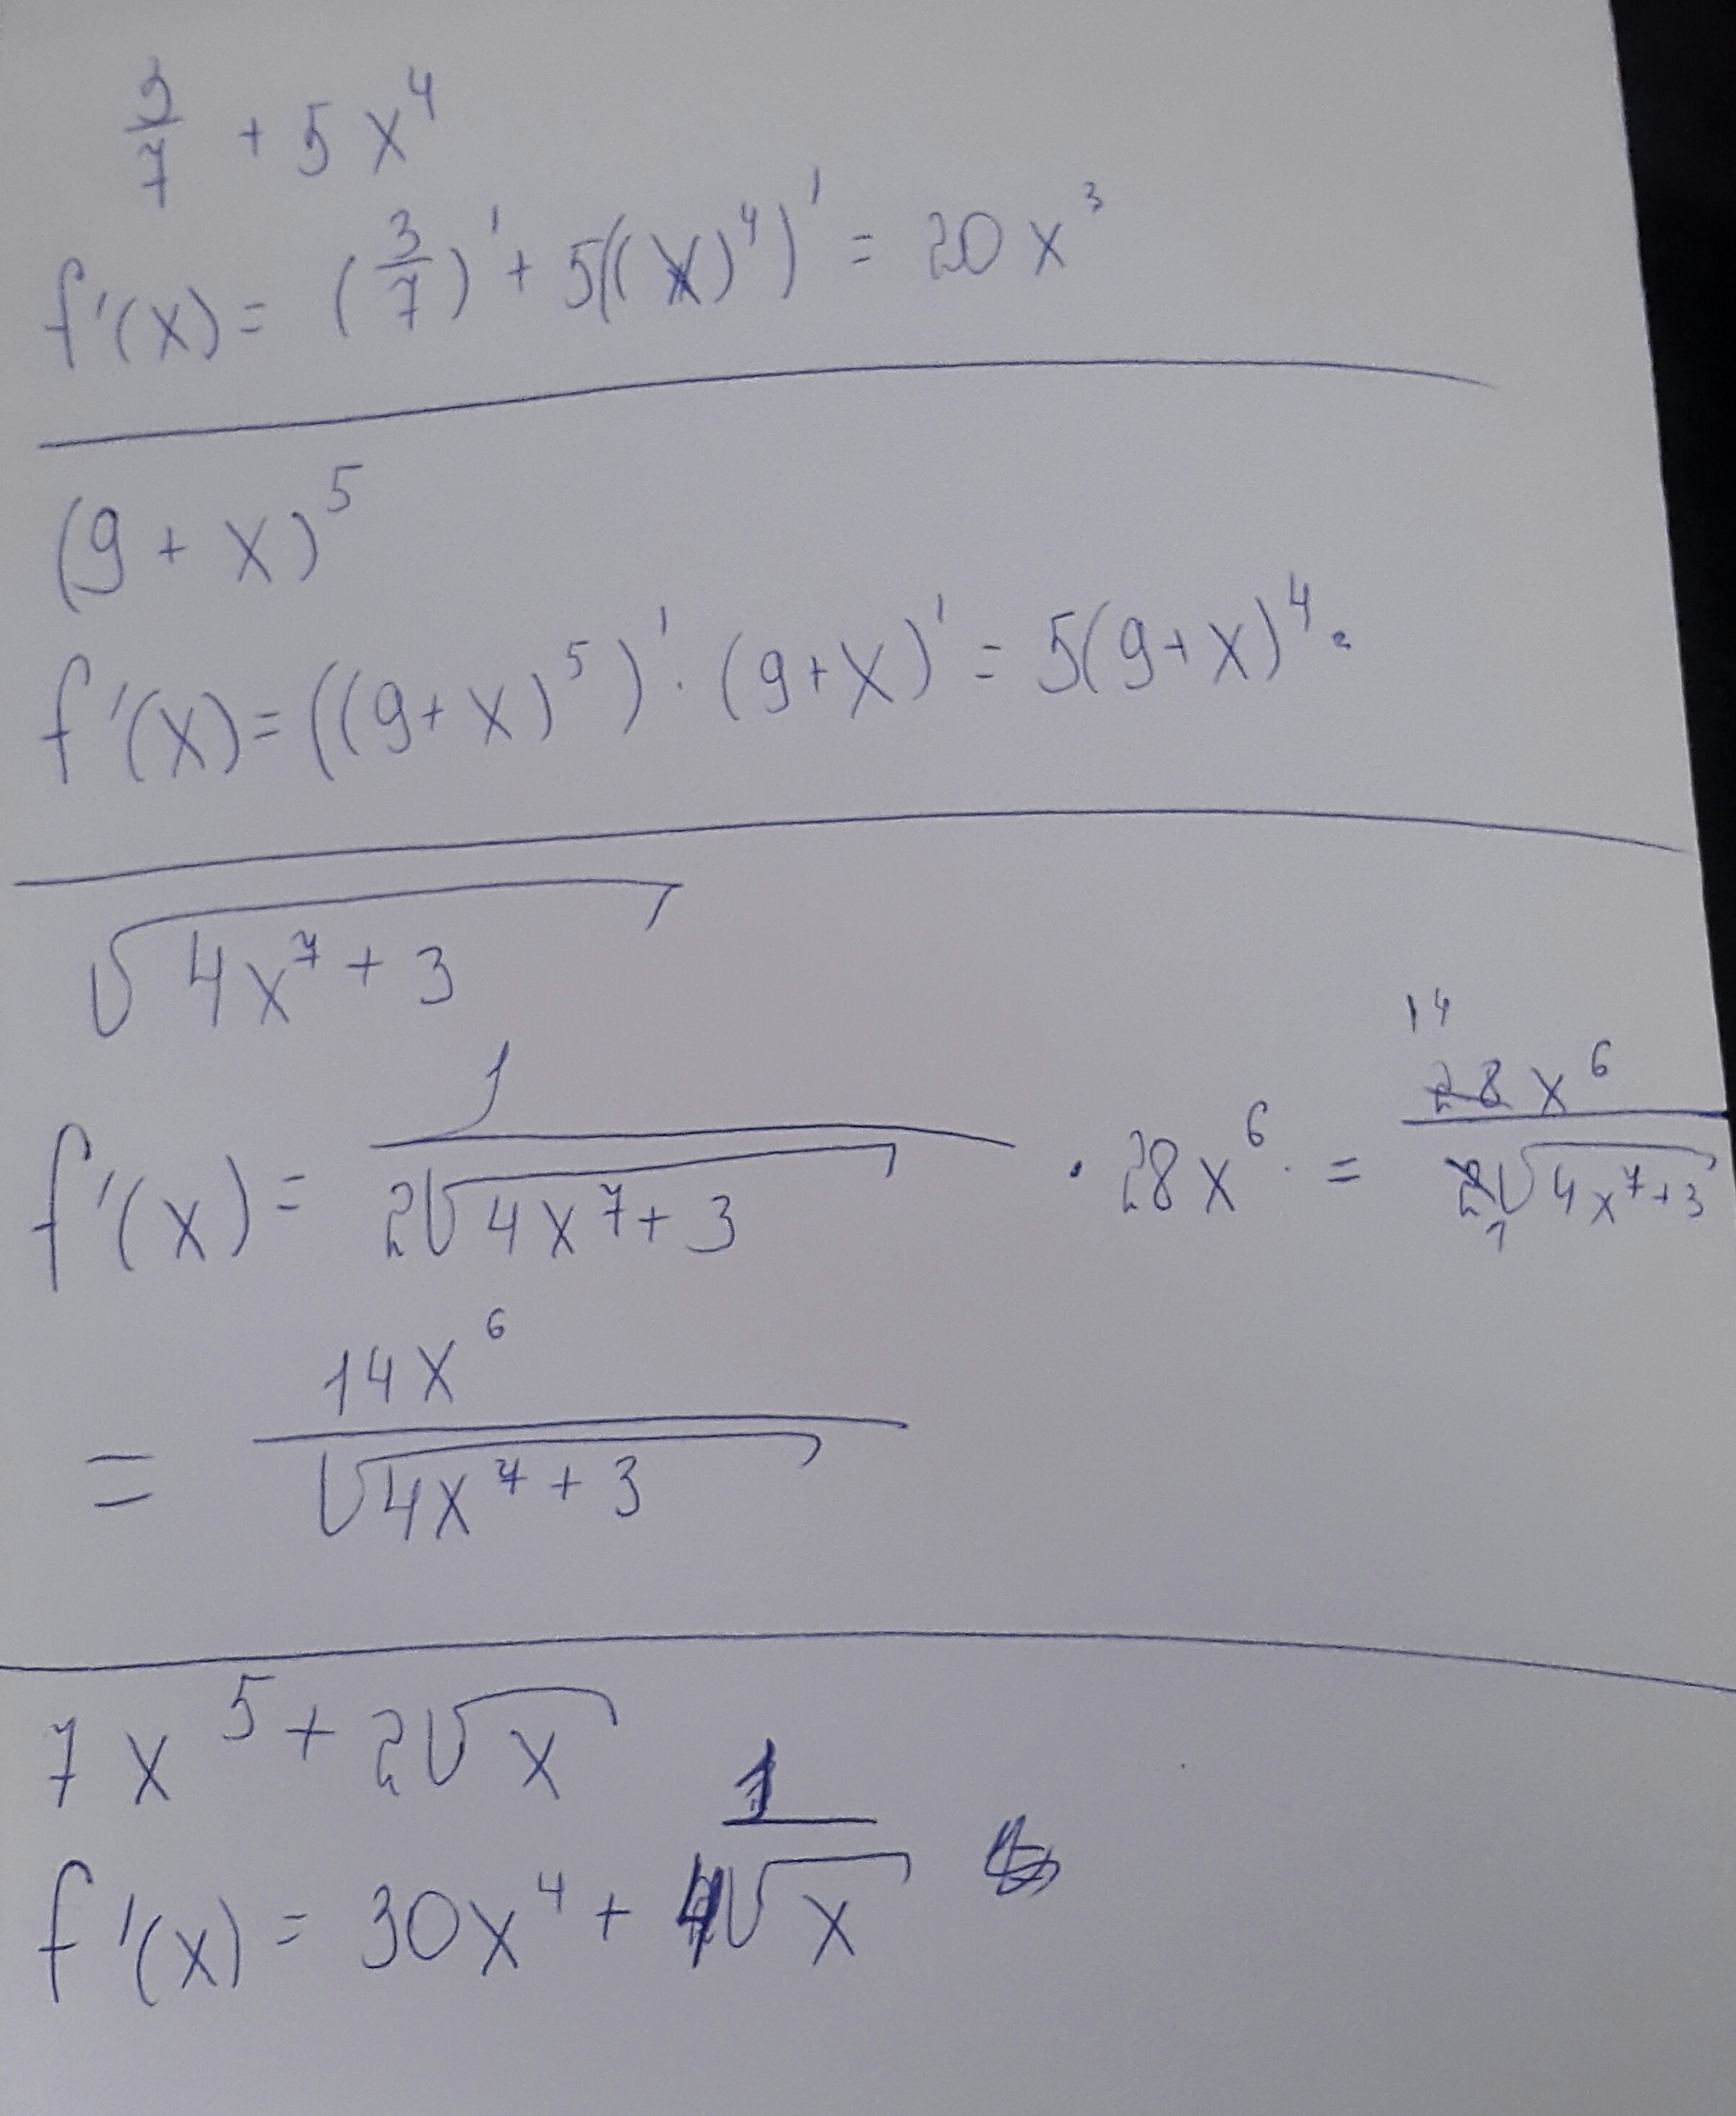 3/7 + 5x⁴
f'(x) = (3/7)' + 5((x)⁴)' = 20x³
(9 + x)⁵
f'(x) = ((9+x)⁵)' · (9+x)' = 5(9+x)⁴.
√(4x⁷ + 3)
f'(x) = 1/(2√(4x⁷ + 3)) · 28x⁶ · = 14 28x⁶/(2 1√(4x⁷+3))
= 14x⁶/√(4x⁷ + 3)
7x⁵ + 2√x
f'(x) = 30x⁴ + 1/√x